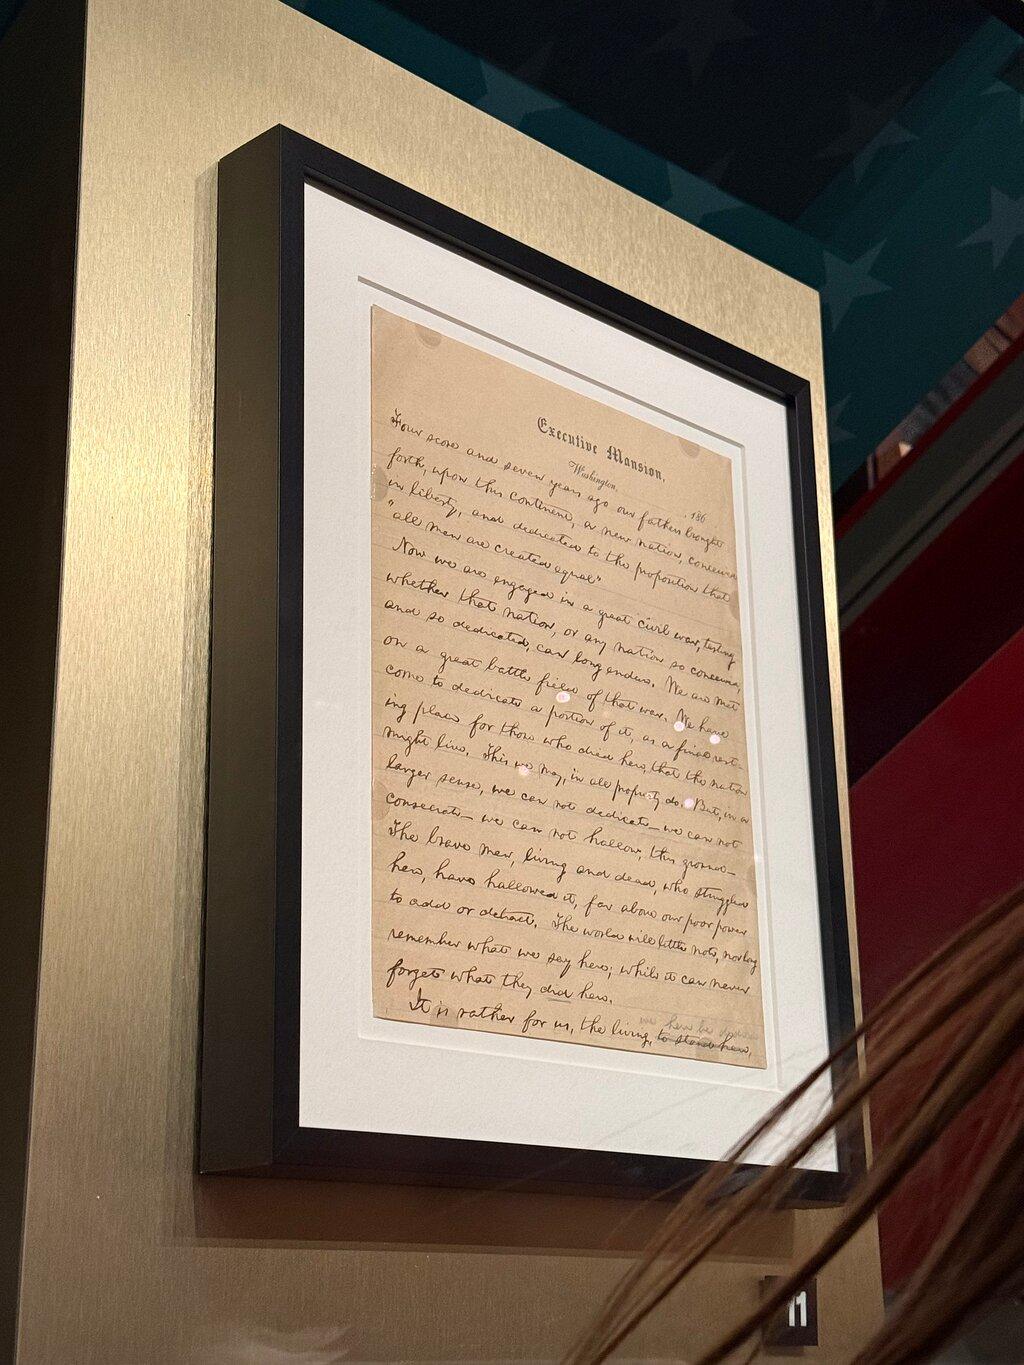 Executive Mansion,
Washington, , 186
Four score and seven years ago our fathers brought
forth, upon this continent, a new nation, conceived
in liberty, and dedicated to the proposition that
"all men are created equal"
Now we are engaged in a great civil war, testing
whether that nation, or any nation so conceived,
and so dedicated, can long endure. We are met
on a great battle field of that war. We have
come to dedicate a portion of it, as a final rest-
ing place for those who died here, that the nation
might live. This we may, in all propriety do. But, in a
larger sense, we can not dedicate — we can not
consecrate — we can not hallow, this ground —
The brave men, living and dead, who struggled
here, have hallowed it, far above our poor power
to add or detract. The world will little note, nor long
remember what we say here; while it can never
forget what they did here.
It is rather for us, the living, to stand here,
we here be
11